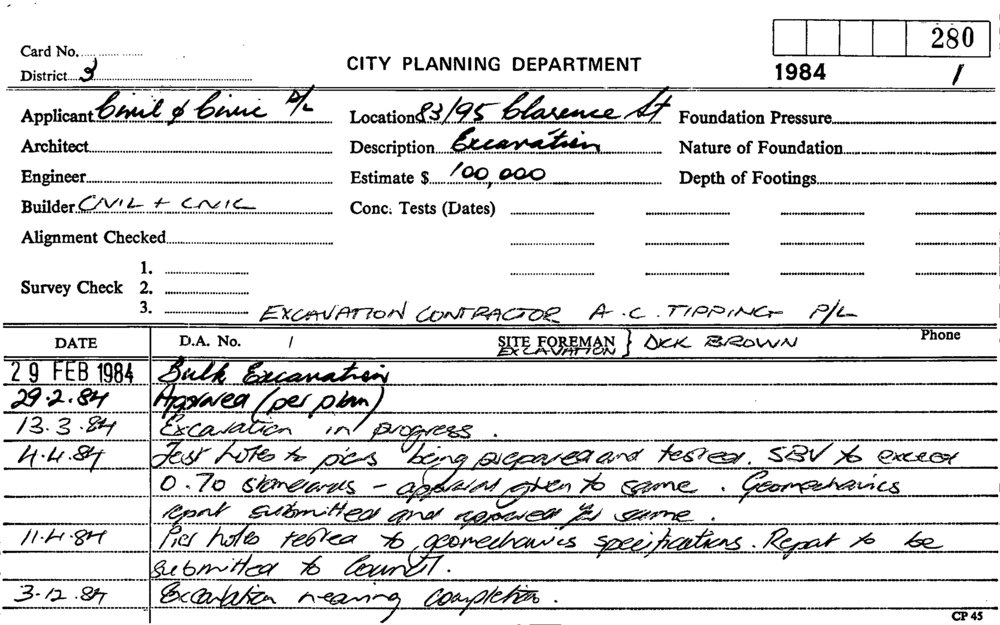 280
Card No.
District 3
CITY PLANNING DEPARTMENT
1984 1
Applicant Civil & Civic P/L
Location 83/95 Clarence St
Foundation Pressure
Architect
Description Excavation
Nature of Foundation
Engineer
Estimate $ 100,000
Depth of Footings
Builder CIVIL + CIVIC
Conc. Tests (Dates)
Alignment Checked
1.
Survey Check 2.
3.
EXCAVATION CONTRACTOR A.C. TIPPING P/L
DATE D.A. No. 1 SITE FOREMAN EXCAVATION } DICK BROWN Phone
29 FEB 1984 Bulk Excavation
29.2.84 Approved (per plan)
13.3.84 Excavation in progress.
4.4.84 Test holes to piers being prepared and tested. SBV to exceed
0.70 standards - approval given to same. Geomechanics
report submitted and approved for same.
11.4.84 Pier holes tested to geomechanics specifications. Report to be
submitted to Council.
3.12.84 Excavation nearing completion.
CP 45